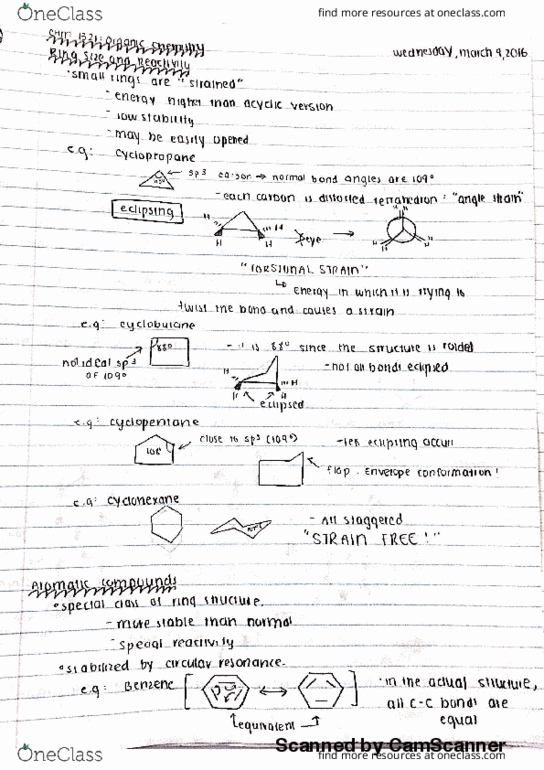 OneClass
find more resources at oneclass.com
CHM 1321: Organic Chemistry
wednesday, march 9, 2016
Ring Size and Reactivity
• small rings are "strained"
- energy higher than acyclic version
- low stability
- may be easily opened
e.g: cyclopropane
sp³ carbon → normal bond angles are 109°
- each carbon is distorted tetrahedron: "angle strain"
eclipsing
H
H
H
H
eye
H
H
H
H
"TORSIONAL STRAIN"
↳ energy in which it is trying to
twist the bond and causes a strain
e.g: cyclobutane
88°
- it is 88° since the structure is folded
not ideal sp³
of 109°
- not all bonds eclipsed
H
H
H
H
eclipsed
e.g: cyclopentane
108°
close to sp³ (109°)
- less eclipsing occurs
flap. Envelope conformation!
e.g: cyclohexane
109°
- All staggered
"STRAIN FREE!"
Aromatic compounds
• special class of ring structure.
- more stable than normal
- special reactivity
• stabilized by circular resonance.
e.g: Benzene
• in the actual structure,
all C-C bonds are
equal
↑equivalent↑
Scanned by CamScanner
OneClass
find more resources at oneclass.com